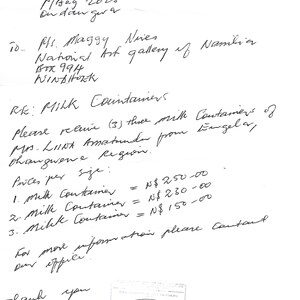 P/Bag 2020
Ondangwa
TO: Ms. Maggy Nires
National Art gallery of Namibia
Box 994
WINDHOEK
RE: Milk Countainers
Please receive (3) three milk Containers of
Mrs. Liina Amatundu from Engela,
Ohangwena Region.
Prices per size:
1. milk Container = N$ 250-00
2. milk Container = N$ 230-00
3. Milk Container = N$ 150-00
For more information please contact
our office.
Thank you